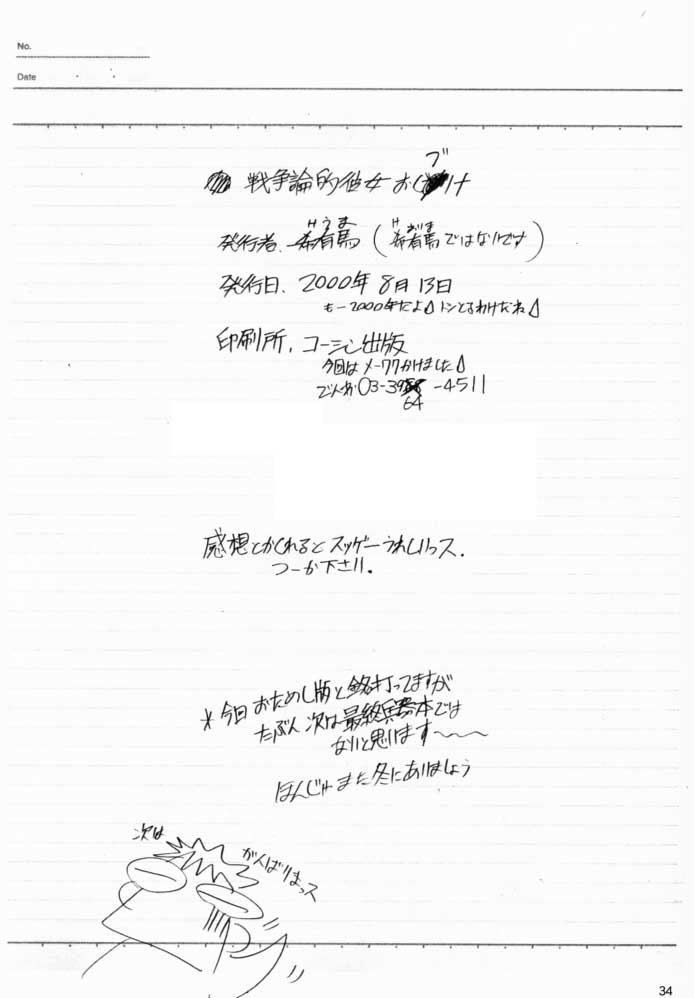 No.
Date
戦争論的彼女 おくづけ
発行者. 希有馬 (希有馬ではないです)
発行日. 2000年 8月 13日
もー2000年だよ トシとるわけだね
印刷所. コーシン出版
今回はメーワクかけました
でんわ 03-3964-4511
感想とかくれるとスッゲーうれしいっス.
つーか下さい.
*今回おためし版と銘打ってますが
たぶん次は最終兵器本では
ないと思います〜〜
ほんじゃまた冬にあいましょう
次は
がんばりまっス
34